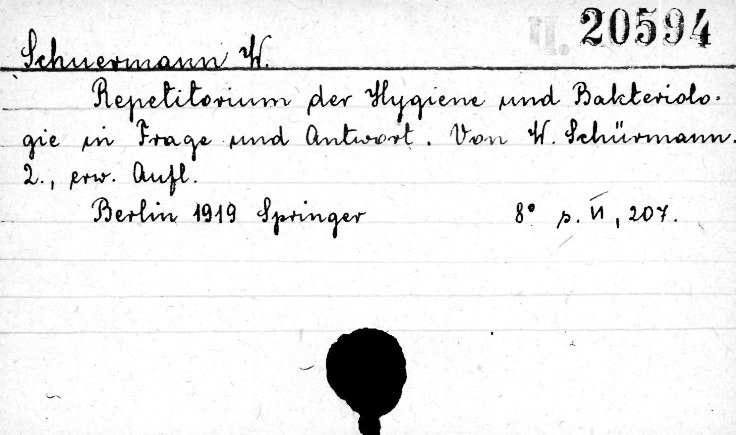 II. 20594
Schuermann W.
Repetitorium der Hygiene und Bakteriolo-
gie in Frage und Antwort. Von W. Schürmann.
2., erw. Aufl.
Berlin 1919 Springer 8° s. VI, 207.